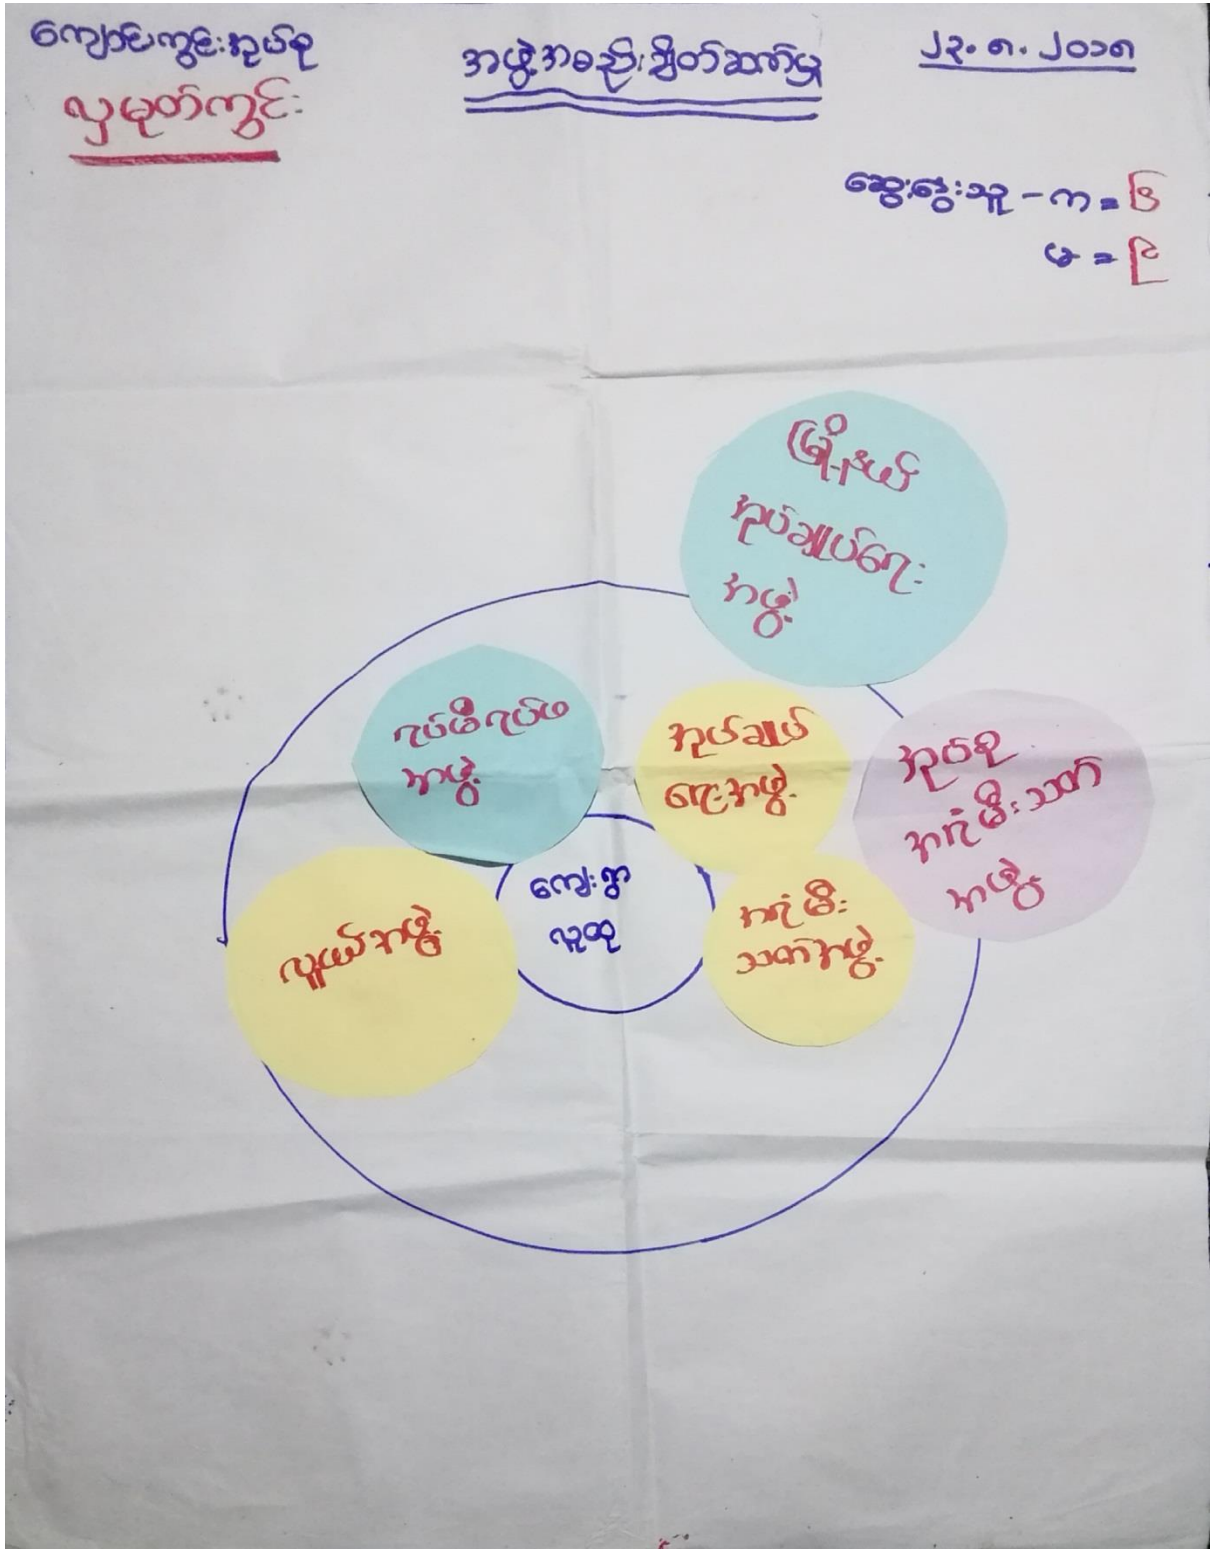 ကျောင်းကွင်းအုပ်စု
လှမုတ်ကွင်း
အဖွဲ့အစည်းချိတ်ဆက်မှု
၂၃.၈.၂၀၁၈
ဆွေးနွေးသူ - ကျ =
မ =
မြို့နယ်
အုပ်ချုပ်ရေး
အဖွဲ့
ရပ်မိရပ်ဖ
အဖွဲ့
အုပ်ချုပ်
ရေးအဖွဲ့
အုပ်စု
အရံမီးသတ်
အဖွဲ့
လူငယ်အဖွဲ့
ကျေးရွာ
လူထု
အရံမီး
သတ်အဖွဲ့